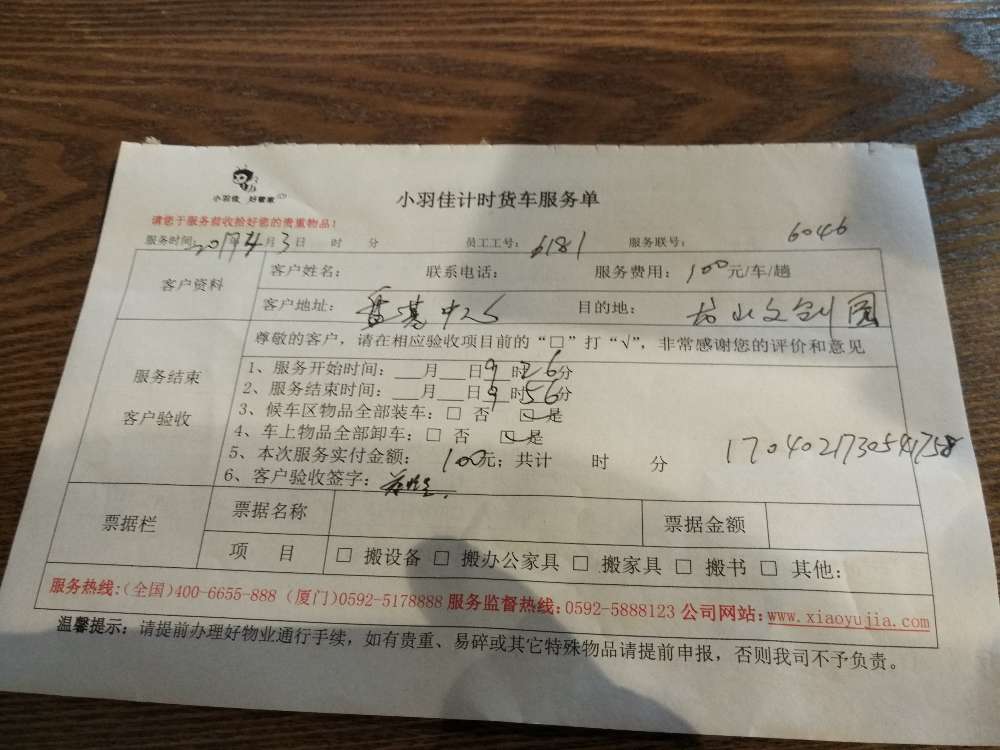 小羽佳 好管家
小羽佳计时货车服务单
请您于服务前收拾好您的贵重物品！
服务时间：2017年4月3日 时 分 员工工号：6181 服务联号：6046
客户资料
客户姓名： 联系电话： 服务费用：100元/车/趟
客户地址： 中心 目的地：龙山文创园
服务结束
客户验收
尊敬的客户，请在相应验收项目前的“□”打“√”，非常感谢您的评价和意见
1、服务开始时间：___月___日9时26分
2、服务结束时间：___月___日9时56分
3、候车区物品全部装车：□ 否 ☑ 是
4、车上物品全部卸车：□ 否 ☑ 是
5、本次服务实付金额： 100元；共计 时 分
1704021730541758
6、客户验收签字：
票据栏 票据名称 票据金额
项 目 □ 搬设备 □ 搬办公家具 □ 搬家具 □ 搬书 □ 其他：
服务热线：(全国)400-6655-888 (厦门)0592-5178888 服务监督热线：0592-5888123 公司网站：www.xiaoyujia.com
温馨提示：请提前办理好物业通行手续，如有贵重、易碎或其它特殊物品请提前申报，否则我司不予负责。